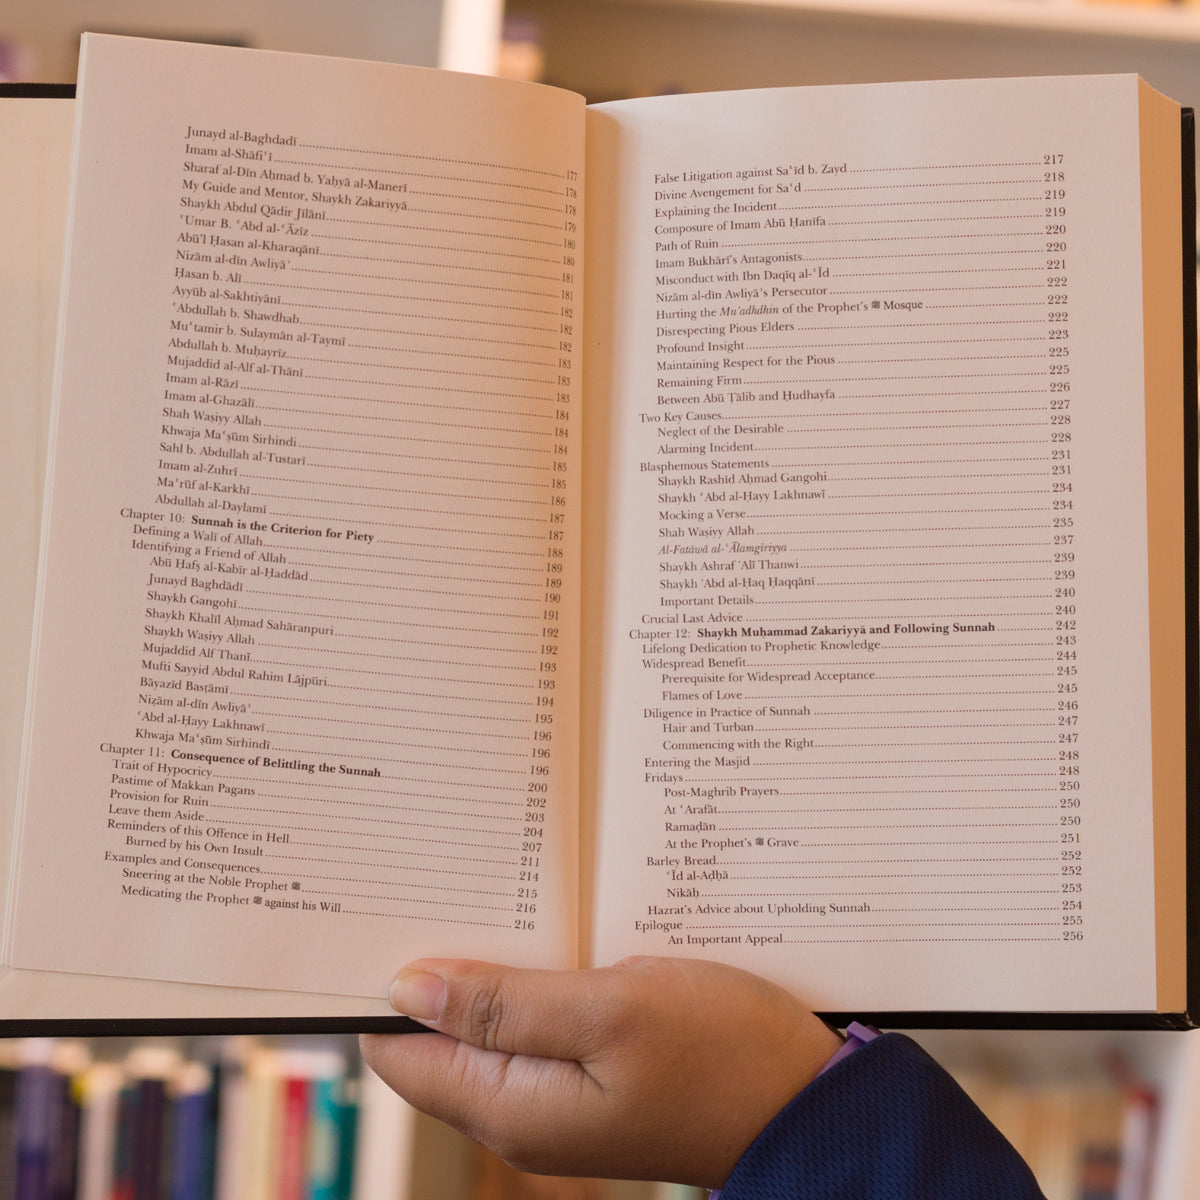 Junayd al-Baghdadī 177
Imam al-Shāfiʿī 178
Sharaf al-Dīn Aḥmad b. Yaḥyā al-Manerī 178
My Guide and Mentor, Shaykh Zakariyyā 179
Shaykh Abdul Qādir Jīlānī 180
ʿUmar B. ʿAbd al-ʿĀzīz 180
Abū'l Ḥasan al-Kharaqānī 181
Nizām al-dīn Awliyāʾ 181
Ḥasan b. Alī 182
Ayyūb al-Sakhtiyānī 182
ʿAbdullah b. Shawdhab 182
Muʿtamir b. Sulaymān al-Taymī 183
Abdullah b. Muḥayrīz 183
Mujaddid al-Alf al-Thānī 183
Imam al-Rāzī 184
Imam al-Ghazālī 184
Shah Waṣiyy Allah 184
Khwaja Maʿṣūm Sirhindi 185
Sahl b. Abdullah al-Tustarī 185
Imam al-Zuhrī 186
Maʿrūf al-Karkhī 187
Abdullah al-Daylamī 187
Chapter 10: Sunnah is the Criterion for Piety 188
Defining a Walī of Allah 189
Identifying a Friend of Allah 189
Abū Ḥafṣ al-Kabīr al-Ḥaddād 190
Junayd Baghdādī 191
Shaykh Gangohī 192
Shaykh Khalīl Aḥmad Sahāranpuri 192
Shaykh Waṣiyy Allah 193
Mujaddid Alf Thanī 193
Mufti Sayyid Abdul Rahim Lājpūri 194
Bāyazīd Basṭāmī 195
Niẓām al-dīn Awliyāʾ 196
ʿAbd al-Ḥayy Lakhnawī 196
Khwaja Maʿṣūm Sirhindī 196
Chapter 11: Consequence of Belittling the Sunnah 200
Trait of Hypocricy 202
Pastime of Makkan Pagans 203
Provision for Ruin 204
Leave them Aside 207
Reminders of this Offence in Hell 211
Burned by his Own Insult 214
Examples and Consequences 215
Sneering at the Noble Prophet ﷺ 216
Medicating the Prophet ﷺ against his Will 216
False Litigation against Saʿīd b. Zayd 217
Divine Avengement for Saʿd 218
Explaining the Incident 219
Composure of Imam Abū Ḥanīfa 219
Path of Ruin 220
Imam Bukhārī's Antagonists 220
Misconduct with Ibn Daqīq al-ʿĪd 221
Nizām al-dīn Awliyā's Persecutor 222
Hurting the Mu'adhdhin of the Prophet's ﷺ Mosque 222
Disrespecting Pious Elders 222
Profound Insight 223
Maintaining Respect for the Pious 225
Remaining Firm 225
Between Abū Ṭālib and Ḥudhayfa 226
Two Key Causes 227
Neglect of the Desirable 228
Alarming Incident 228
Blasphemous Statements 231
Shaykh Rashīd Aḥmad Gangohi 231
Shaykh ʿAbd al-Ḥayy Lakhnawī 234
Mocking a Verse 234
Shah Waṣiyy Allah 235
Al-Fatāwā al-ʿĀlamgīriyya 237
Shaykh Ashraf ʿAlī Thanwi 239
Shaykh ʿAbd al-Haq Ḥaqqāni 239
Important Details 240
Crucial Last Advice 240
Chapter 12: Shaykh Muḥammad Zakariyyā and Following Sunnah 242
Lifelong Dedication to Prophetic Knowledge 243
Widespread Benefit 244
Prerequisite for Widespread Acceptance 245
Flames of Love 245
Diligence in Practice of Sunnah 246
Hair and Turban 247
Commencing with the Right 247
Entering the Masjid 248
Fridays 248
Post-Maghrib Prayers 250
At ʿArafāt 250
Ramaḍān 250
At the Prophet's ﷺ Grave 251
Barley Bread 252
ʿĪd al-Aḍḥā 252
Nikāḥ 253
Hazrat's Advice about Upholding Sunnah 254
Epilogue 255
An Important Appeal 256